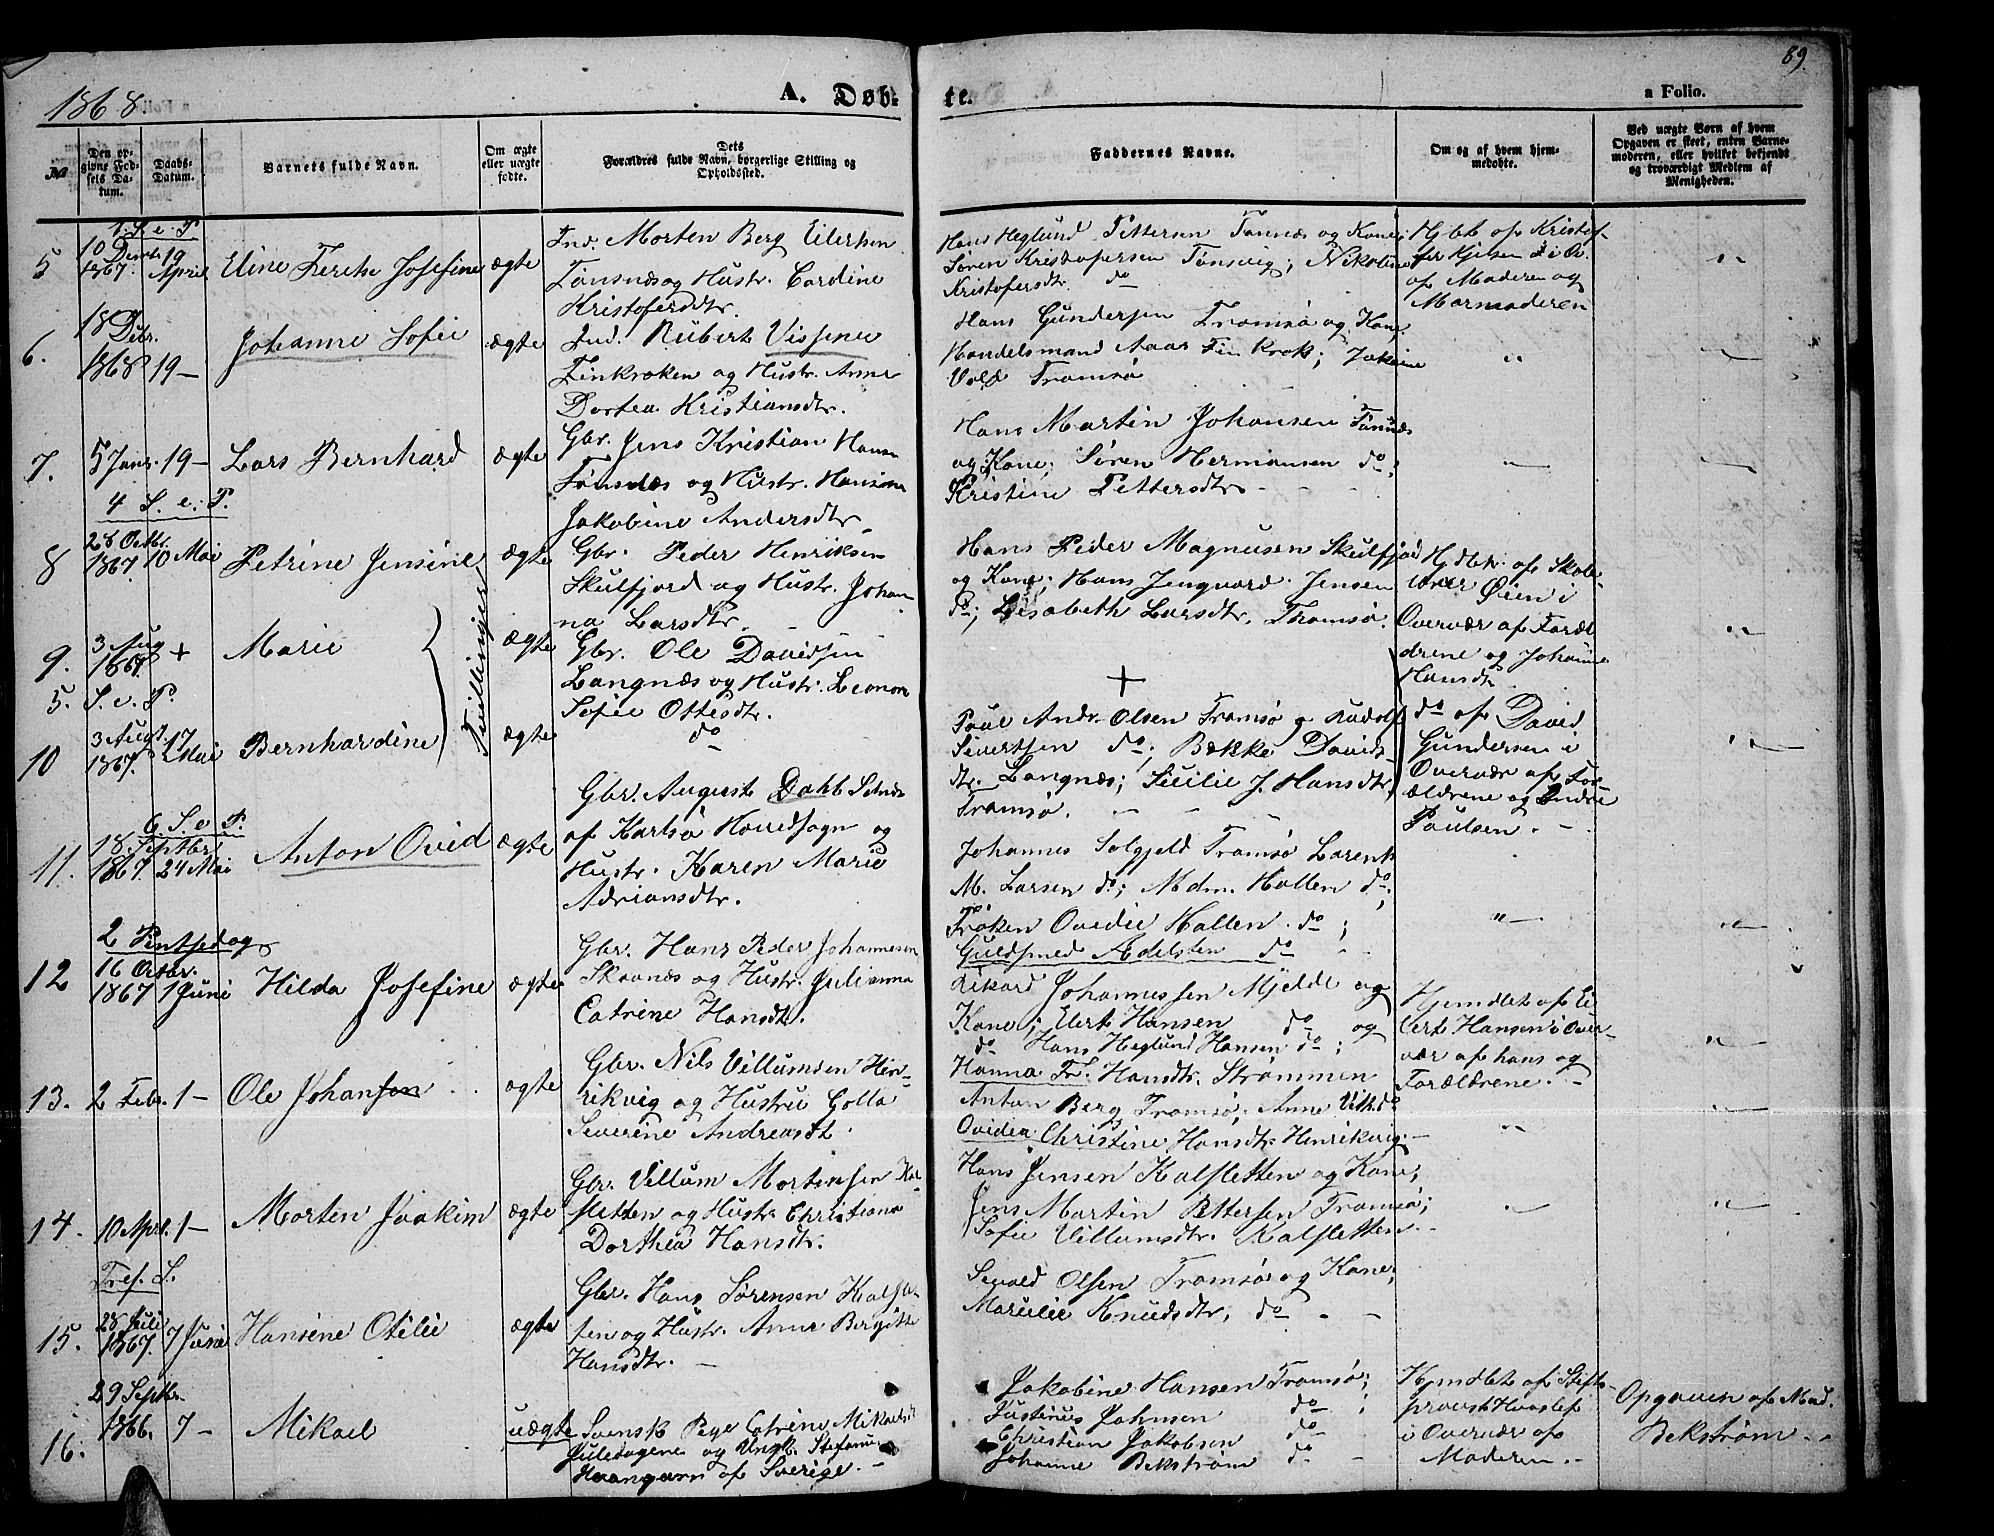 1868.
A. Døb-
te.
a Folio.
89.
№
Den opgivne Fødsels Datum.
Daabs-Datum.
Barnets fulde Navn.
Om ægte eller uægte fødte.
Dets Forældres fulde Navn, borgerlige Stilling og Opholdssted.
Faddernes Navne.
Om og af hvem hjemmedøbte.
Ved uægte Børn af hvem Opgaven er skeet, enten Barnemoderen, eller hvilket bekjendt og troværdigt Medlem af Menigheden.
1. S. e. P.
5
10 Decbr. 1867.
19 April.
Eline Josefine
ægte
Ind. Morten Berg Eilertsen
Tønsnæs og Hustr. Cardine
Kristofersdtr.
Hans Heglund Pettersen Tønsnæs og Kone;
Søren Kristofersen Tønsvig; Nikoline
Kristofersdtr. do
Hjdbt af Kristof-
fer
af Moderen og
Mormoderen
6.
18 Debr. 1868
19 —
Johanne Sofie
ægte
Ind. Rubert
Finkroken og Hustr. Anne
Dortea Kristiansdtr.
Hans Gundersen Tromsø og Kone,
Handelsmand Aaar Finkrok; Jakine
Vold Tromsø
7.
5 Janr.
19 —
Lars Bernhard
ægte
Gbr. Jens Kristian Hansen
Tønsnæs og Hustr. Hansina
Jakobine Andersdtr.
Hans Martin Johansen Tønsnæs
og Kone; Søren Hermansen do;
Kristine Pettersdtr. - - -
4 S. e. P.
8
28 Octbr. 1867.
10 Mai
Petrine Jensine
ægte
Gbr. Peder Henriksen
Skulfjord og Hustr. Johan-
na Larsdtr. -
Hans Peder Magnusen Skulfjord
og Kone; Hans Jengvard Jensen
do; Lisabeth Larsdtr. Tromsø.
Hjdbt. af Skole-
lærer Øien i
Overvær af Foræl-
drene og Johanne
Hansdtr.
9.
3 Aug 1867.
+
Marie
Tvillinger
ægte
Gbr. Ole Davidsen
Langnæs og Hustr. Leonore
Sofie Ottesdtr.
+
5. S. e. P.
10
3 Augt. 1867.
17 Mai
Bernhardine
ægte
do
Paul Andr. Olsen Tromsø og Rudolf
Sivertsen do; Bække Davids-
dtr. Langnæs; Sicilie J. Hansdtr.
Tromsø. - - -
do af David
Gundersen i
Overvær af For-
ældrene og Andre
Paulsen. -
6. S. e. P.
11.
18. Septbr. 1867.
24 Mai
Anton Ovid
ægte
Gbr. August Dahl
af Karlsø Hovedsogn og
Hustr. Karen Marie
Adriansdtr.
Johannes Solgjeld Tromsø Larents
M. Larsen do; Mdm. Hallen do;
Frøken Ovidie Hallen. do;
Guldsmed Adelsten do
2 Pintsedag
12
16 Octbr. 1867
1 Juni
Hilda Josefine
ægte
Gbr. Hans Peder Johannesen
Skaanæs og Hustr. Julianna
Catrine Hansdtr.
Rikard Johannessen Mjelde og
Kone; Elert Hansen do og
do Hans Heglund Hansen do;
Hanna Fr. Hansdtr. Strømmen
Hjemdbt af Ei-
lert Hansen i Over-
vær af hans og
Forældrene. -
13.
2 Febr.
1 —
Ole Johan
ægte
Gbr. Nils Villumsen Hen-
rikvig og Hustru Golla
Severine Andreasdt.
Anton Berg Tromsø; Anne Vilh. do
Ovidea Christine Hansdtr. Henrikvig. -
14.
10 Apr.
1 —
Morten Joakim
ægte
Gbr. Villum Mortensen Kal-
sletten og Hustr. Christiana
Dorthea Hansdtr.
Hans Jensen Kalsletten og Kone;
Jens Martin Pettersen Tromsø;
Sofie Villumsdtr. Kalsletten. -
Tref. S.
15.
28 Juli 1867.
7 Juni
Hansine Otilie
ægte
Gbr. Hans Sørensen
og Hustr. Anne Bergitte
Hansdtr. —
Sevald Olsen Tromsø og Kone;
Marulie Knudsdtr, do - -
16.
29 Septbr. 1866.
7 —
Mikael
uægte
Svensk Pige Catrine Mikaelsdt
og Ungk. Stefanus
af Sverige. -
Jakobine Hansen Tromsø;
Justinus Johnsen do;
Christian Jakobsen do
Johanne Bekstrøm do -
Hjemdbt af Stifts-
provst
i Overvær af
Moderen. -
Opgaven af Mad.
Bekstrøm. -